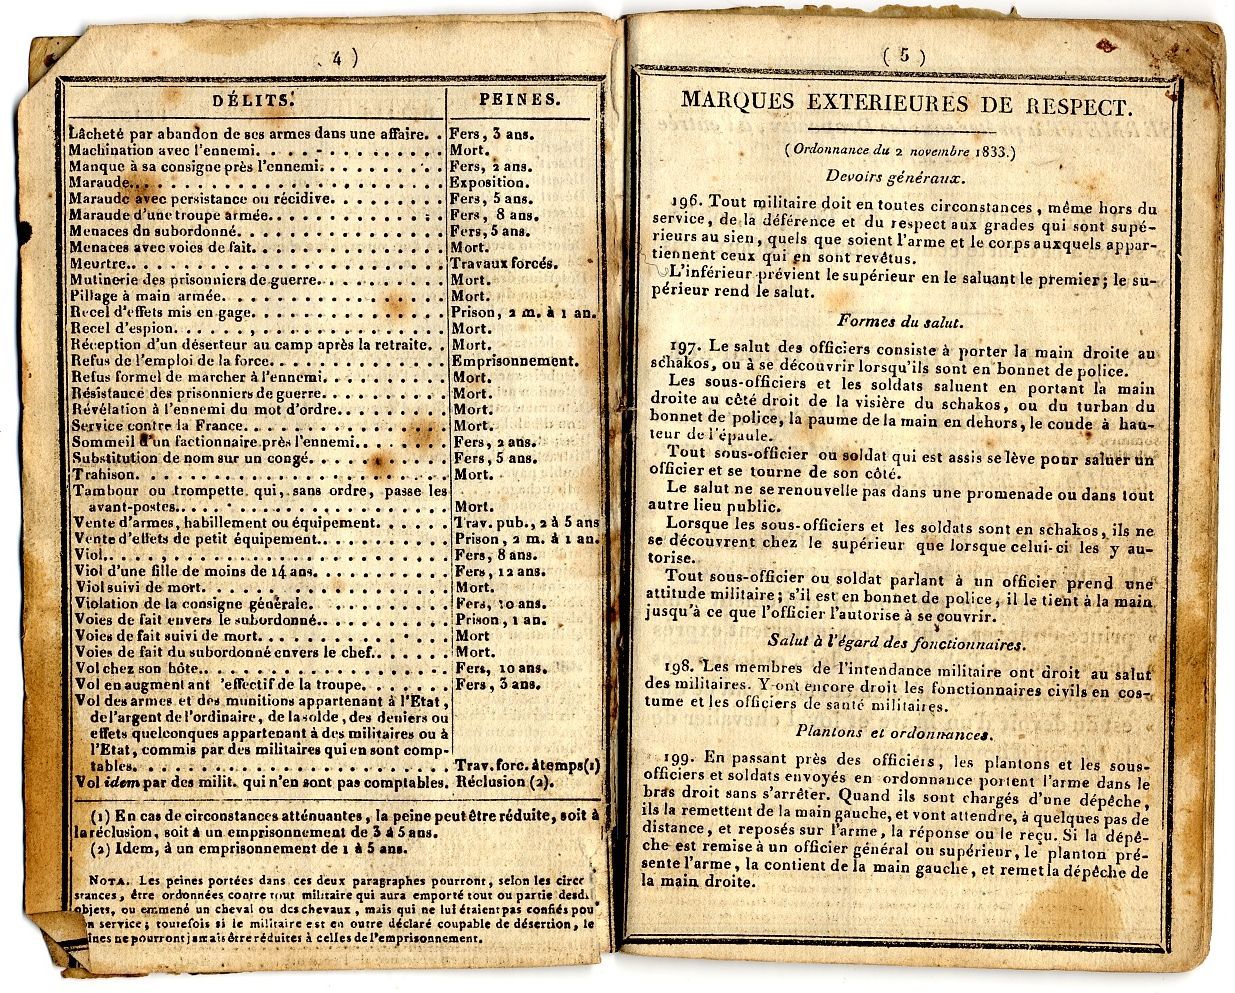 4 )
DÉLITS. PEINES.
Lâcheté par abandon de ses armes dans une affaire. . Fers, 3 ans.
Machination avec l'ennemi. . . . . . . . . . . . Mort.
Manque à sa consigne près l'ennemi. . . . . . . . Fers, 2 ans.
Maraude. . . . . . . . . . . . . . . . . . . . Exposition.
Maraude avec persistance ou récidive. . . . . . . Fers, 5 ans.
Maraude d'une troupe armée. . . . . . . . . . . Fers, 8 ans.
Menaces dn subordonné. . . . . . . . . . . . . Fers, 5 ans.
Menaces avec voies de fait. . . . . . . . . . . . Mort.
Meurtre. . . . . . . . . . . . . . . . . . . . Travaux forcés.
Mutinerie des prisonniers de guerre. . . . . . . . Mort.
Pillage à main armée. . . . . . . . . . . . . . Mort.
Recel d'effets mis en gage. . . . . . . . . . . . Prison, 2 m. à 1 an.
Recel d'espion. . . . . . . . . . . . . . . . . Mort.
Réception d'un déserteur au camp après la retraite. . Mort.
Refus de l'emploi de la force. . . . . . . . . . . Emprisonnement.
Refus formel de marcher à l'ennemi. . . . . . . . Mort.
Résistance des prisonniers de guerre. . . . . . . . Mort.
Révélation à l'ennemi du mot d'ordre. . . . . . . Mort.
Service contre la France. . . . . . . . . . . . . Mort.
Sommeil d'un factionnaire près l'ennemi. . . . . . Fers, 2 ans.
Substitution de nom sur un congé. . . . . . . . . Fers, 5 ans.
Trahison. . . . . . . . . . . . . . . . . . . . Mort.
Tambour ou trompette qui, sans ordre, passe les
avant-postes. . . . . . . . . . . . . . . . . . Mort.
Vente d'armes, habillement ou équipement. . . . . Trav. pub., 2 à 5 ans
Vente d'effets de petit équipement. . . . . . . . . Prison, 2 m. à 1 an.
Viol. . . . . . . . . . . . . . . . . . . . . . Fers, 8 ans.
Viol d'une fille de moins de 14 ans. . . . . . . . . Fers, 12 ans.
Viol suivi de mort. . . . . . . . . . . . . . . . Mort.
Violation de la consigne générale. . . . . . . . . Fers, 10 ans.
Voies de fait envers le subordonné. . . . . . . . . Prison, 1 an.
Voies de fait suivi de mort. . . . . . . . . . . . Mort
Voies de fait du subordonné envers le chef. . . . . Mort.
Vol chez son hôte. . . . . . . . . . . . . . . . Fers, 10 ans.
Vol en augmentant 'effectif de la troupe. . . . . . Fers, 3 ans.
Vol des armes et des munitions appartenant à l'Etat,
de l'argent de l'ordinaire, de la solde, des deniers ou
effets quelconques appartenant à des militaires ou à
l'Etat, commis par des militaires qui en sont comp-
tables. . . . . . . . . . . . . . . . . . . . . Trav. forc. à temps (1)
Vol idem par des milit. qui n'en sont pas comptables. Réclusion (2).
(1) En cas de circonstances atténuantes, la peine peut être réduite, soit à
la réclusion, soit à un emprisonnement de 3 à 5 ans.
(2) Idem, à un emprisonnement de 1 à 5 ans.
NOTA. Les peines portées dans ces deux paragraphes pourront, selon les circ
stances, être ordonnées contre tout militaire qui aura emporté tout ou partie desd.
objets, ou emmené un cheval ou des chevaux, mais qui ne lui étaient pas confiés pou
n service; toutefois si le militaire est en outre déclaré coupable de désertion, le
ines ne pourront jamais être réduites à celles de l'emprisonnement.
( 5 )
MARQUES EXTERIEURES DE RESPECT.
(Ordonnance du 2 novembre 1833.)
Devoirs généraux.
196. Tout militaire doit en toutes circonstances, même hors du
service, de la déférence et du respect aux grades qui sont supé-
rieurs au sien, quels que soient l'arme et le corps auxquels appar-
tiennent ceux qui en sont revêtus.
L'inférieur prévient le supérieur en le saluant le premier; le su-
périeur rend le salut.
Formes du salut.
197. Le salut des officiers consiste à porter la main droite au
schakos, ou à se découvrir lorsqu'ils sont en bonnet de police.
Les sous-officiers et les soldats saluent en portant la main
droite au côté droit de la visière du schakos, ou du turban du
bonnet de police, la paume de la main en dehors, le coude à hau-
teur de l'épaule.
Tout sous-officier ou soldat qui est assis se lève pour saluer un
officier et se tourne de son côté.
Le salut ne se renouvelle pas dans une promenade ou dans tout
autre lieu public.
Lorsque les sous-officiers et les soldats sont en schakos, ils ne
se découvrent chez le supérieur que lorsque celui-ci les y au-
torise.
Tout sous-officier ou soldat parlant à un officier prend une
attitude militaire; s'il est en bonnet de police, il le tient à la main
jusqu'à ce que l'officier l'autorise à se couvrir.
Salut à l'égard des fonctionnaires.
198. Les membres de l'intendance militaire ont droit au salut
des militaires. Y ont encore droit les fonctionnaires civils en cos-
tume et les officiers de santé militaires.
Plantons et ordonnances.
199. En passant près des officiers, les plantons et les sous-
officiers et soldats envoyés en ordonnance portent l'arme dans le
bras droit sans s'arrêter. Quand ils sont chargés d'une dépêche,
ils la remettent de la main gauche, et vont attendre, à quelques pas de
distance, et reposés sur l'arme, la réponse ou le reçu. Si la dépê-
che est remise à un officier général ou supérieur, le planton pré-
sente l'arme, la contient de la main gauche, et remet la dépêche de
la main droite.